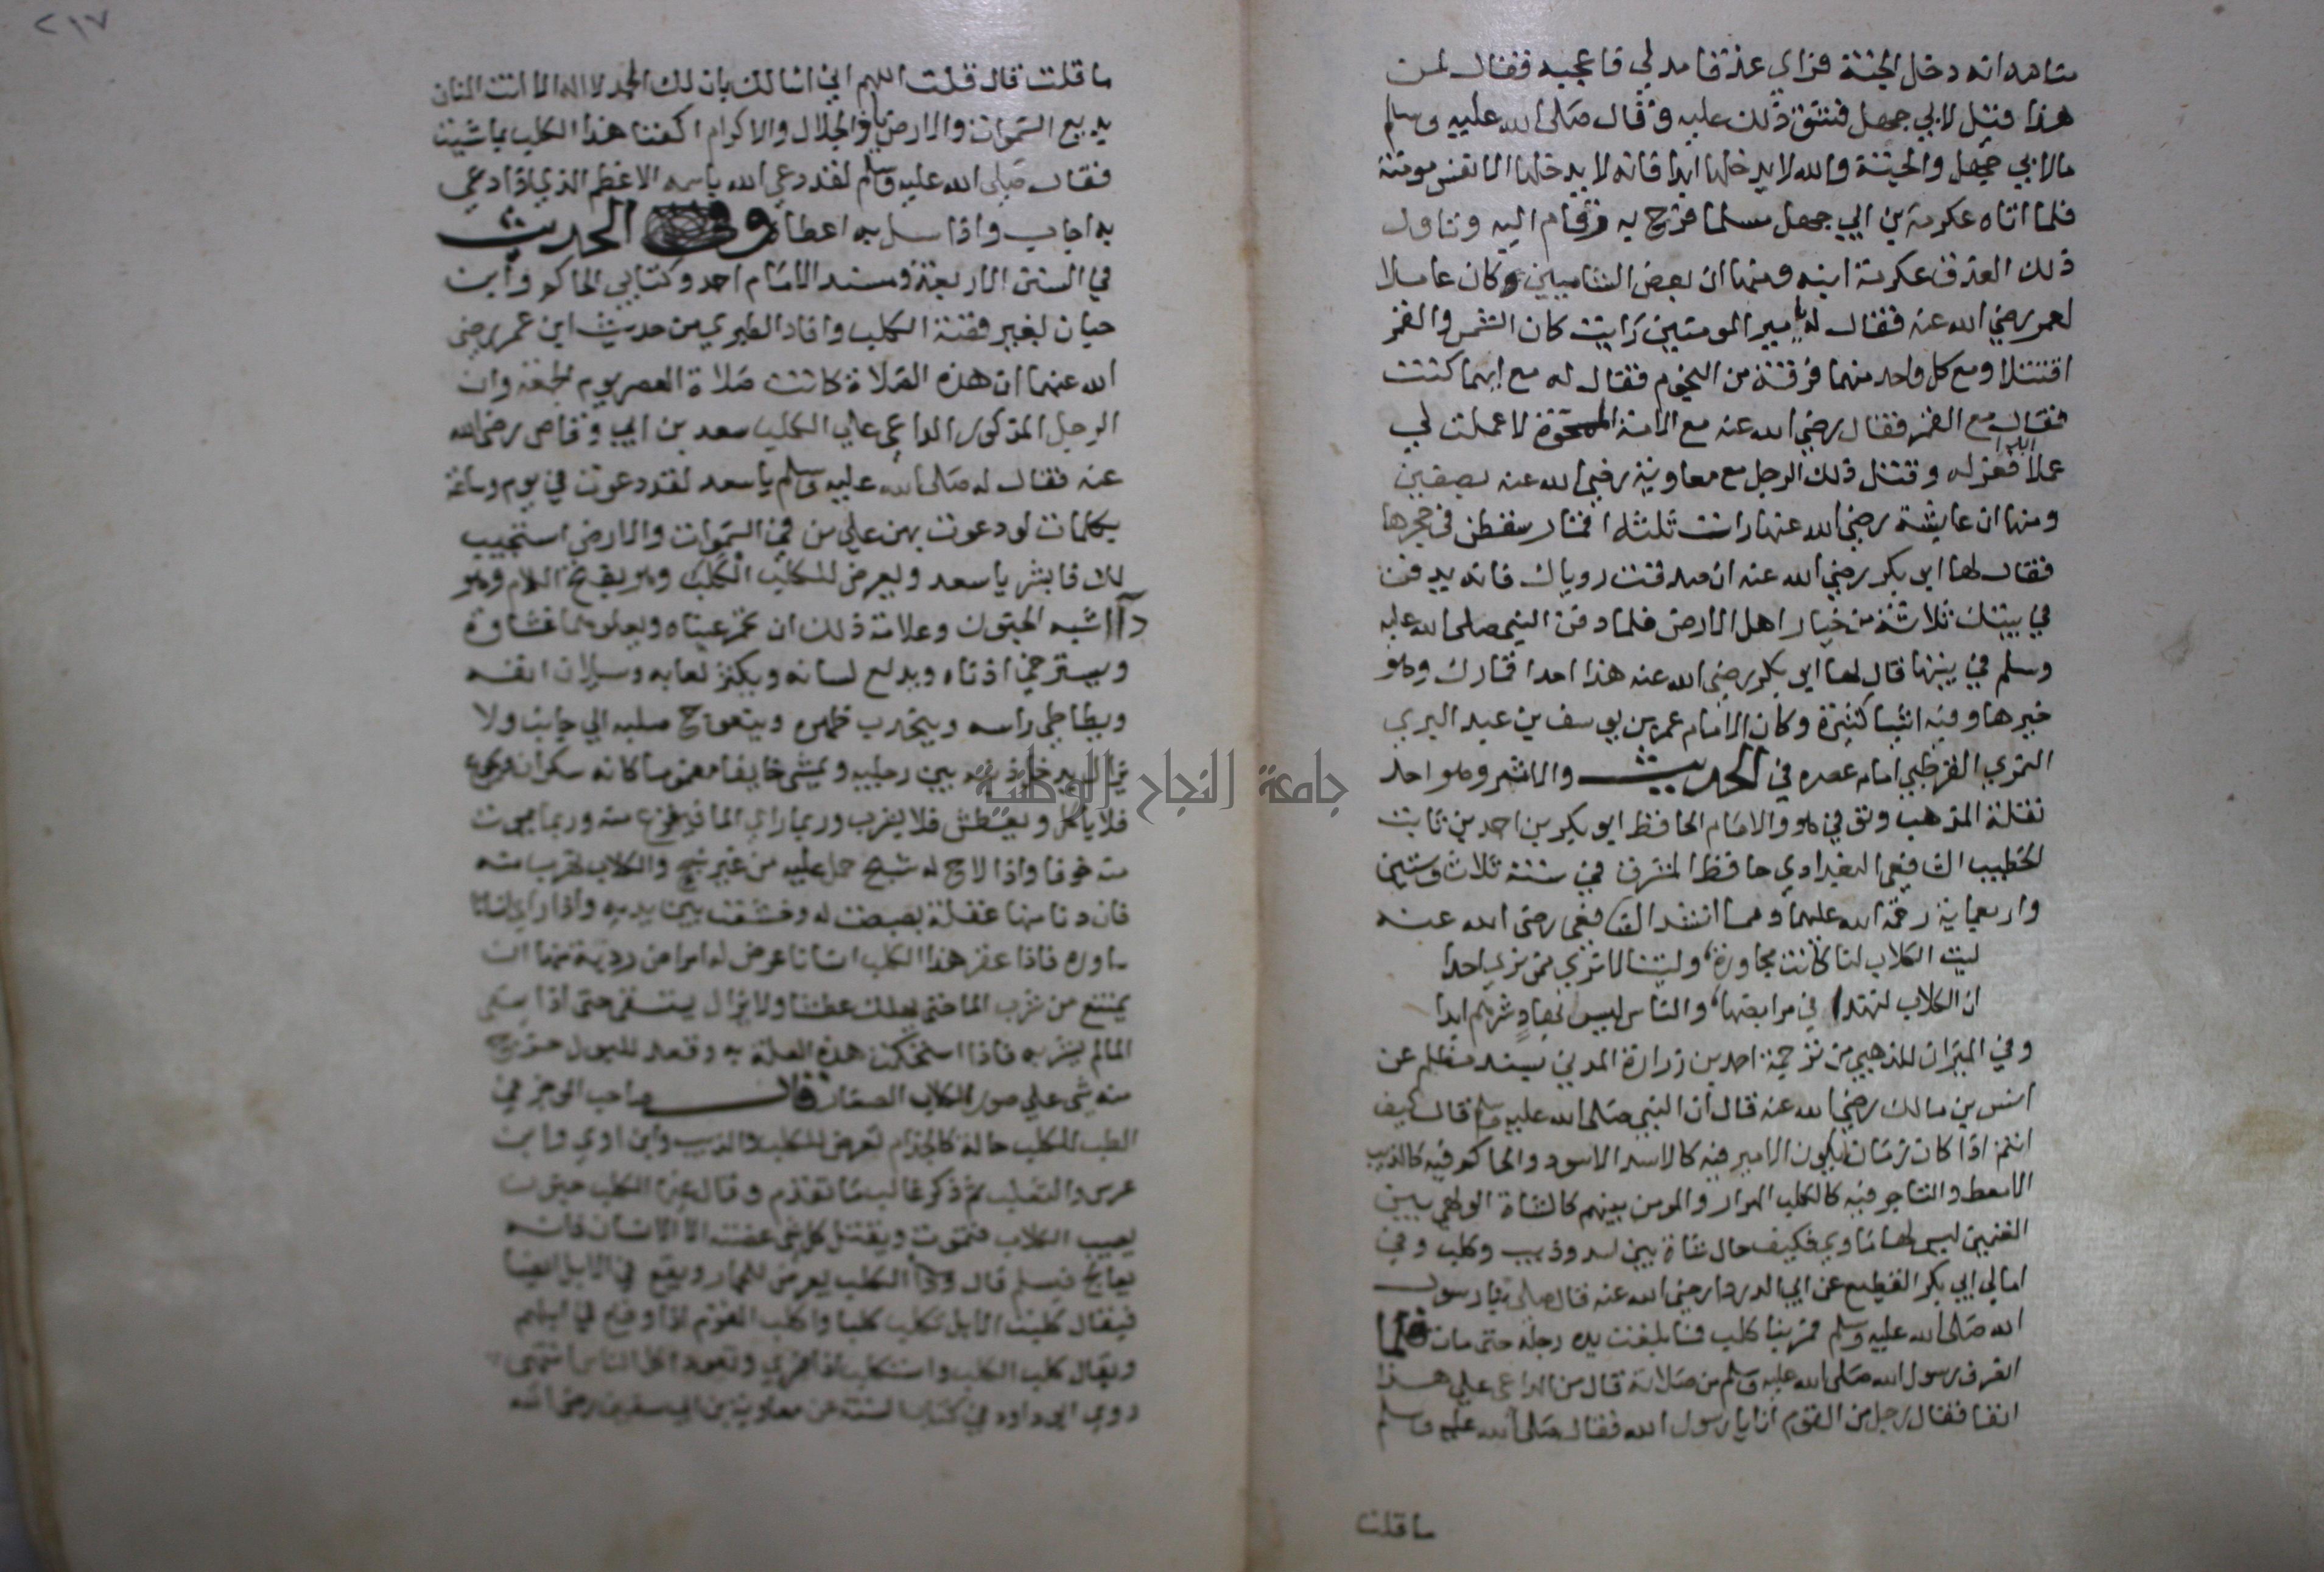 منامه انه دخل الجنة فراي عذقا مدلي فاعجبه فقال لمن
هذا فقيل لابي جهل فشق ذلك عليه وقال صلي الله عليه وسلم
مالابي جهل والجنة والله لا يدخلها ابدا فانه لا يدخلها الا نفس مومنة
فلما اتاه عكرمة بن ابي جهل مسلما فرح به وقام اليه وتاول
ذلك العذق عكرمة ابنه ومنها ان بعض الشاميين وكان عاملا
لعمر رضي الله عنه فقال له يا امير المومنين رايت كان الشمس والقمر
اقتتلا ومع كل واحد منهما فرقة من النجوم فقال له مع ايهما كنت
فقال مع القمر فقال رضي الله عنه مع الاية الممحوة لا عملت لي
عملا ابدا فعزله وقتل ذلك الرجل مع معاوية رضي الله عنه بصفين
ومنها ان عايشة رضي الله عنها رات ثلثة اقمار سقطن في حجرها
فقال لها ابو بكر رضي الله عنه ان صدقت روياك فانه يدفن
في بيتك ثلاثة من خيار اهل الارض فلما دفن النبي صلي الله عليه
وسلم في بيتها قال لها ابو بكر رضي الله عنه هذا احد اقمارك وهو
خيرها وفيه اشيا كثيرة وكان الامام عمر بن يوسف بن عبد البر
النمري القرطبي امام عصره في الحديث والاثر وهو احد
نقلة المذهب وتوفي هو والامام الحافظ ابو بكر بن احمد بن ثابت
لخطيب الشافعي البغدادي حافظ المشرق في سنة ثلاث وستين
واربعماية رحمة الله عليهما ومما انشد الشافعي رضي الله عنه
ليت الكلاب لنا كانت مجاورة وليتنا لا نري ممن نري احدا
ان الكلاب لتهدا في مرابضها والناس ليس بهاد شرهم ابدا
وفي الميزان للذهبي من ترجمة احمد بن زرارة المدني بسند مظلم عن
انس بن مالك رضي الله عنه قال ان النبي صلي الله عليه وسلم قال كيف
انتم اذا كان زمان يكون الامير فيه كالاسد الاسود والحاكم فيه كالذيب
الامعط والتاجر فيه كالكلب الهرار والمومن بينهم كالشاة الولهي بين
الغنمين ليس لها ماوي فكيف حال شاة بين اسد وذيب وكلب وفي
امالي ابي بكر القطيعي عن ابي الدردا رضي الله عنه قال صلي بنا رسول
الله صلي الله عليه وسلم فمر بنا كلب فما بلغت يده رجله حتي مات فلما
انصرف رسول الله صلي الله عليه وسلم من صلاته قال من الداعي علي هذا
انفا فقال رجل من القوم انا يا رسول الله فقال صلي الله عليه وسلم
ما قلت
٢١٧
ما قلت قال قلت اللهم اني اسالك بان لك الحمد لا اله الا انت المنان
بديع السموات والارض يا ذا الجلال والاكرام اكفنا هذا الكلب بما شيت
فقال صلي الله عليه وسلم لقد دعي الله باسمه الاعظم الذي اذا دعي
به اجاب واذا سيل به اعطا وفي الحديث
في السنن الاربعة ومسند الامام احمد وكتابي الحاكم وابن
حيان لغير قصة الكلب وافاد الطبري من حديث ابن عمر رضي
الله عنهما ان هذه الصلاة كانت صلاة العصر يوم الجمعة وان
الرجل المذكور الداعي علي الكلب سعد بن ابي وقاص رضي الله
عنه فقال له صلي الله عليه وسلم يا سعد لقد دعوت في يوم وساعة
بكلمات لو دعوت بهن علي من في السموات والارض استجيب
لك فابشر يا سعد ويعرض للكلب الكلب وهو بفتح اللام وهو
داا شبه الجنون وعلامة ذلك ان تحمر عيناه ويعلوهما غشاوة
ويسترخي اذناه ويدلع لسانه ويكثر لعابه وسيلان انفه
ويطاطي راسه ويتحدب ظهره ويتعوج صلبه الي جانب ولا
يزال يدخل ذنبه بين رجليه ويمشي خايفا مغموما كانه سكران ويجوع
فلا ياكل ويعطش فلا يشرب وربما راي الما فيفزع منه وربما يموت
منه خوفا واذا لاح له شبح حمل عليه من غير نبح والكلاب تهرب منه
فان دنا منها غفلة بصبصت له وخشعت بين يديه واذا راي انسانا
ساوره فاذا عقر هذا الكلب انسانا عرض له امراض ردية منها ان
يمتنع من شرب الما حتي يهلك عطشا ولا يزال يستسقي حتي اذا سقي
الما لم يشربه فاذا استحكمت هذه العلة به وقعد للبول خرج
منه شي علي صورة الكلاب الصغار قال صاحب الموجز في
الطب الكلب حالة كالجذام تعرض للكلب والذيب وابن اوي وابن
عرس والثعلب ثم ذكر غالب ما تقدم وقال غيره الكلب جنون
يصيب الكلاب فتموت ويقتل كل شي عضته الا الانسان فانه
يعالج فيسلم قال ودا الكلب يعرض للحمار ويقع في الابل ايضا
فيقال كلبت الابل تكلب كلبا واكلب القوم اذا وقع في ابلهم
ويقال كلب الكلب واستكلب اذا ضري وتعود اكل الناس انتهي
روي ابي داود في كتاب السنة عن معاوية بن ابي سفين رضي الله
جامعة النجاح الوطنية